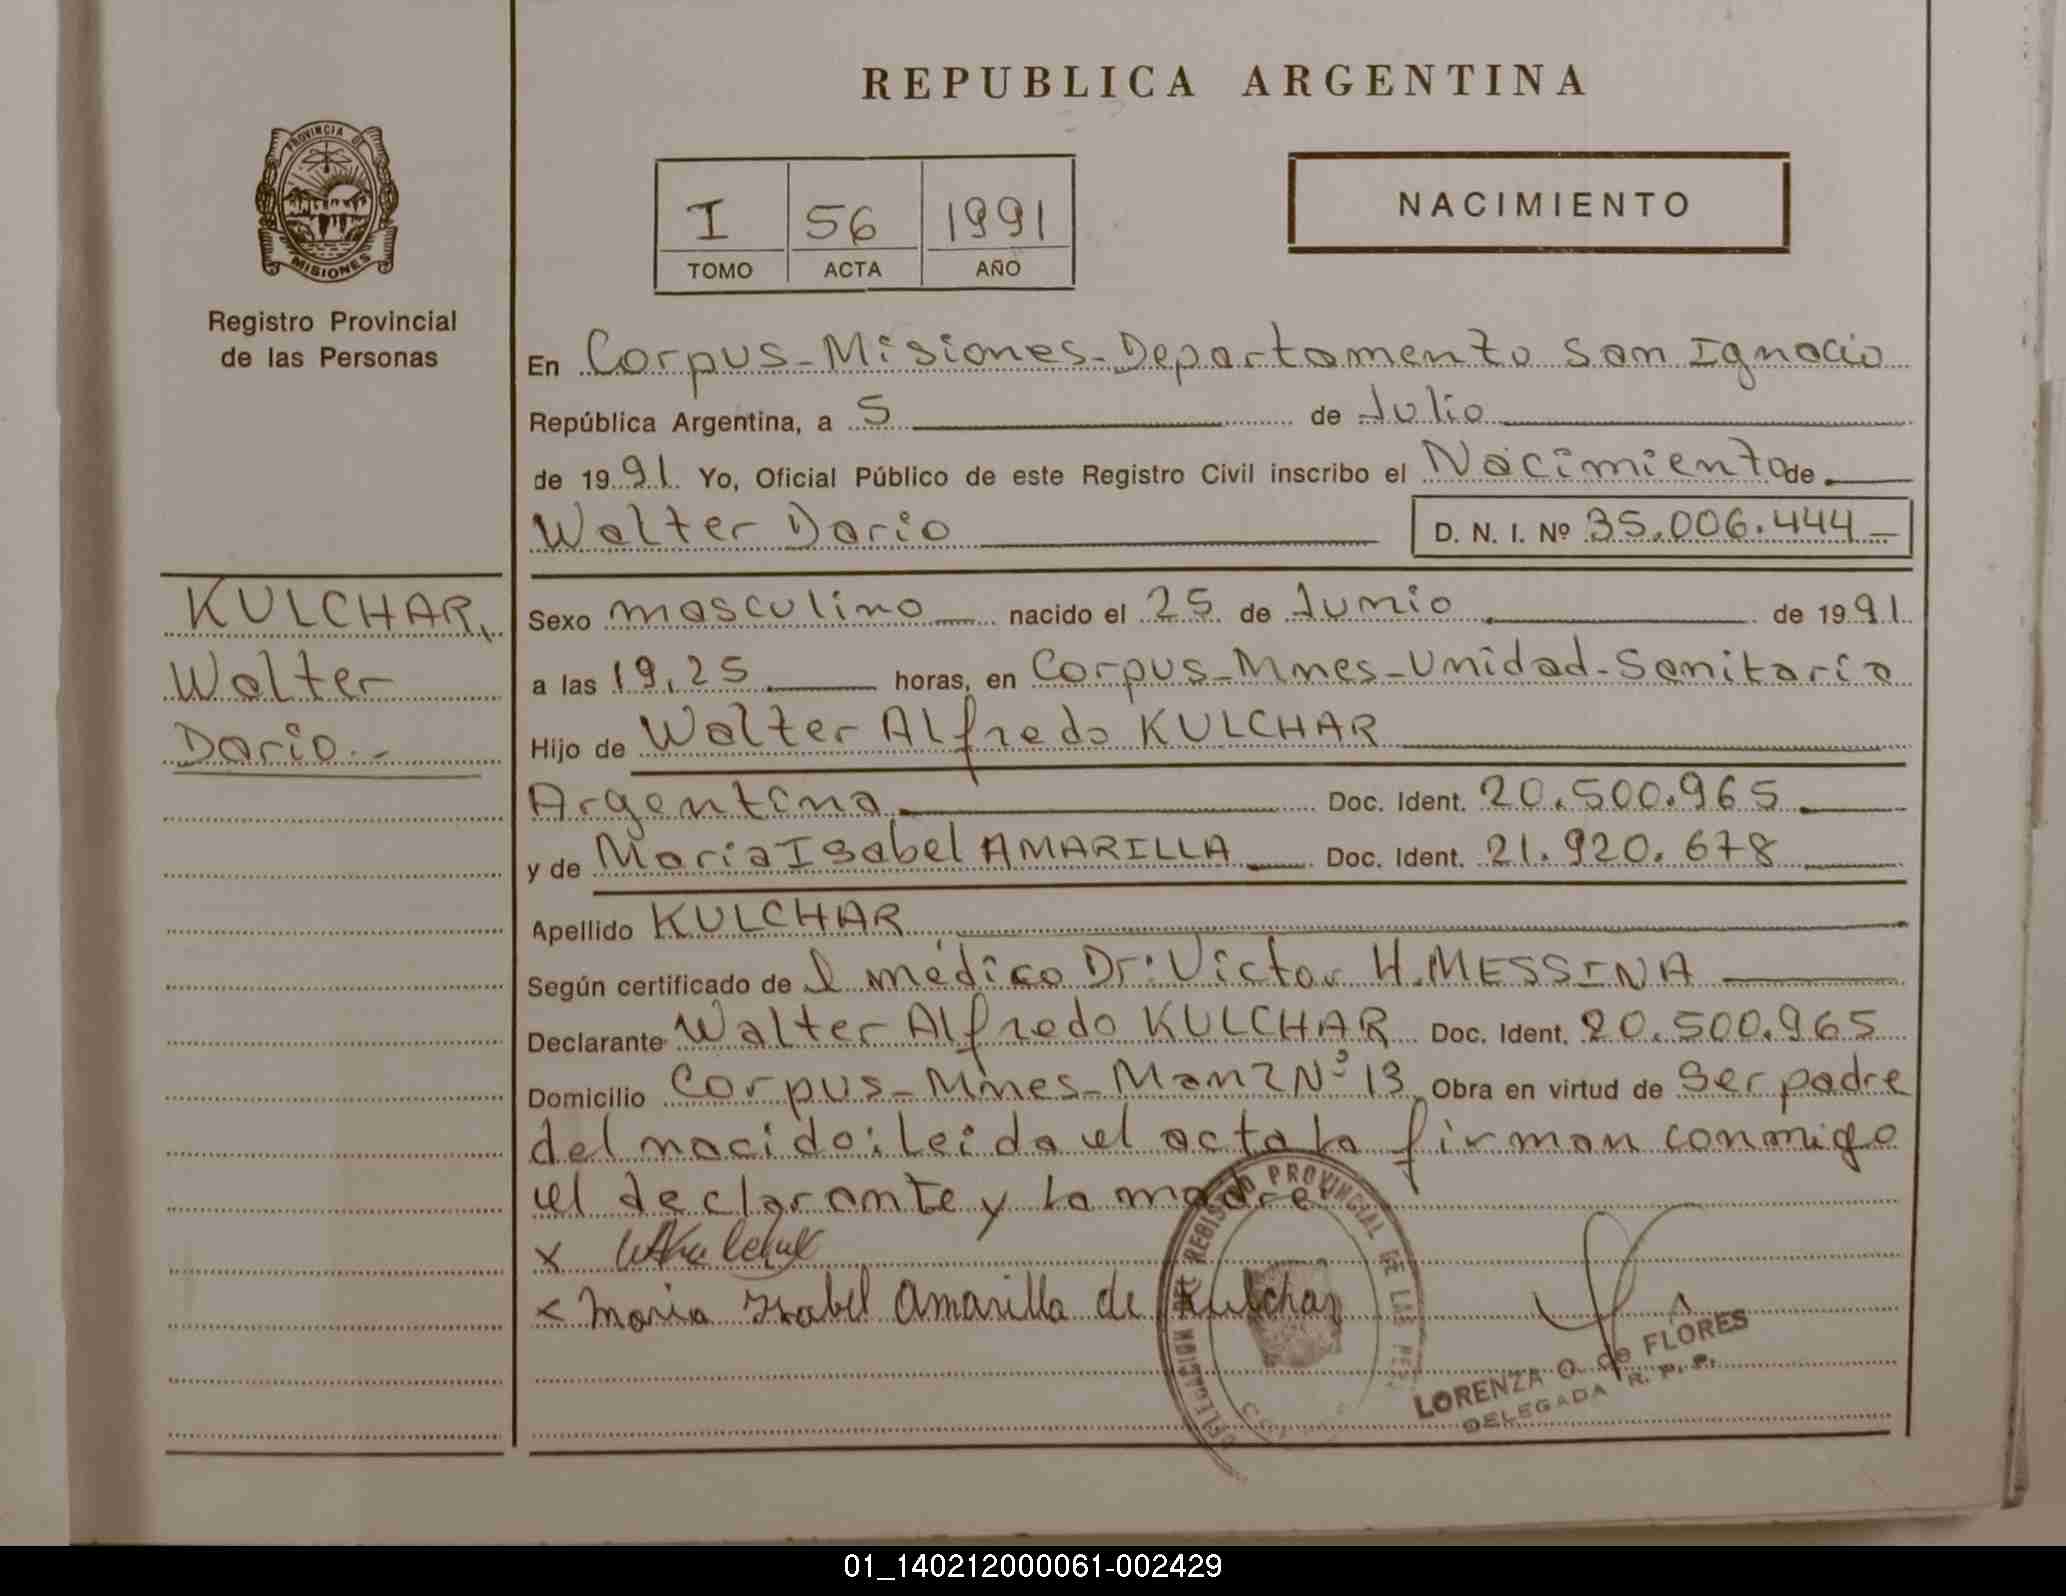 REPUBLICA ARGENTINA
PROVINCIA DE
MISIONES
Registro Provincial
de las Personas
I 56 1991
TOMO ACTA AÑO
NACIMIENTO
En Corpus-Misiones-Departamento San Ignacio
República Argentina, a 5 de Julio
de 1991. Yo, Oficial Público de este Registro Civil inscribo el Nacimiento de
Walter Dario D. N. I. Nº 35.006.444-
KULCHAR,
Walter
Dario.-
Sexo masculino nacido el 25 de Junio de 1991.
a las 19,25 horas, en Corpus-Mnes-Unidad-Sanitaria
Hijo de Walter Alfredo KULCHAR
Argentina Doc. Ident. 20.500.965
y de Maria Isabel AMARILLA Doc. Ident. 21.920.678
Apellido KULCHAR
Según certificado de l médico Dr: Victor H. MESSINA
Declarante Walter Alfredo KULCHAR Doc. Ident. 20.500.965
Domicilio Corpus-Mnes-Manz Nº 13. Obra en virtud de Ser padre
del nacido: Leida el acta la firman conmigo
el declarante y la madre
x
x Maria Isabel Amarilla de Kulchar
DELEGACION DEL REGISTRO PROVINCIAL DE LAS PER
LORENZA O. de FLORES
DELEGADA R. P. P.
01_140212000061-002429